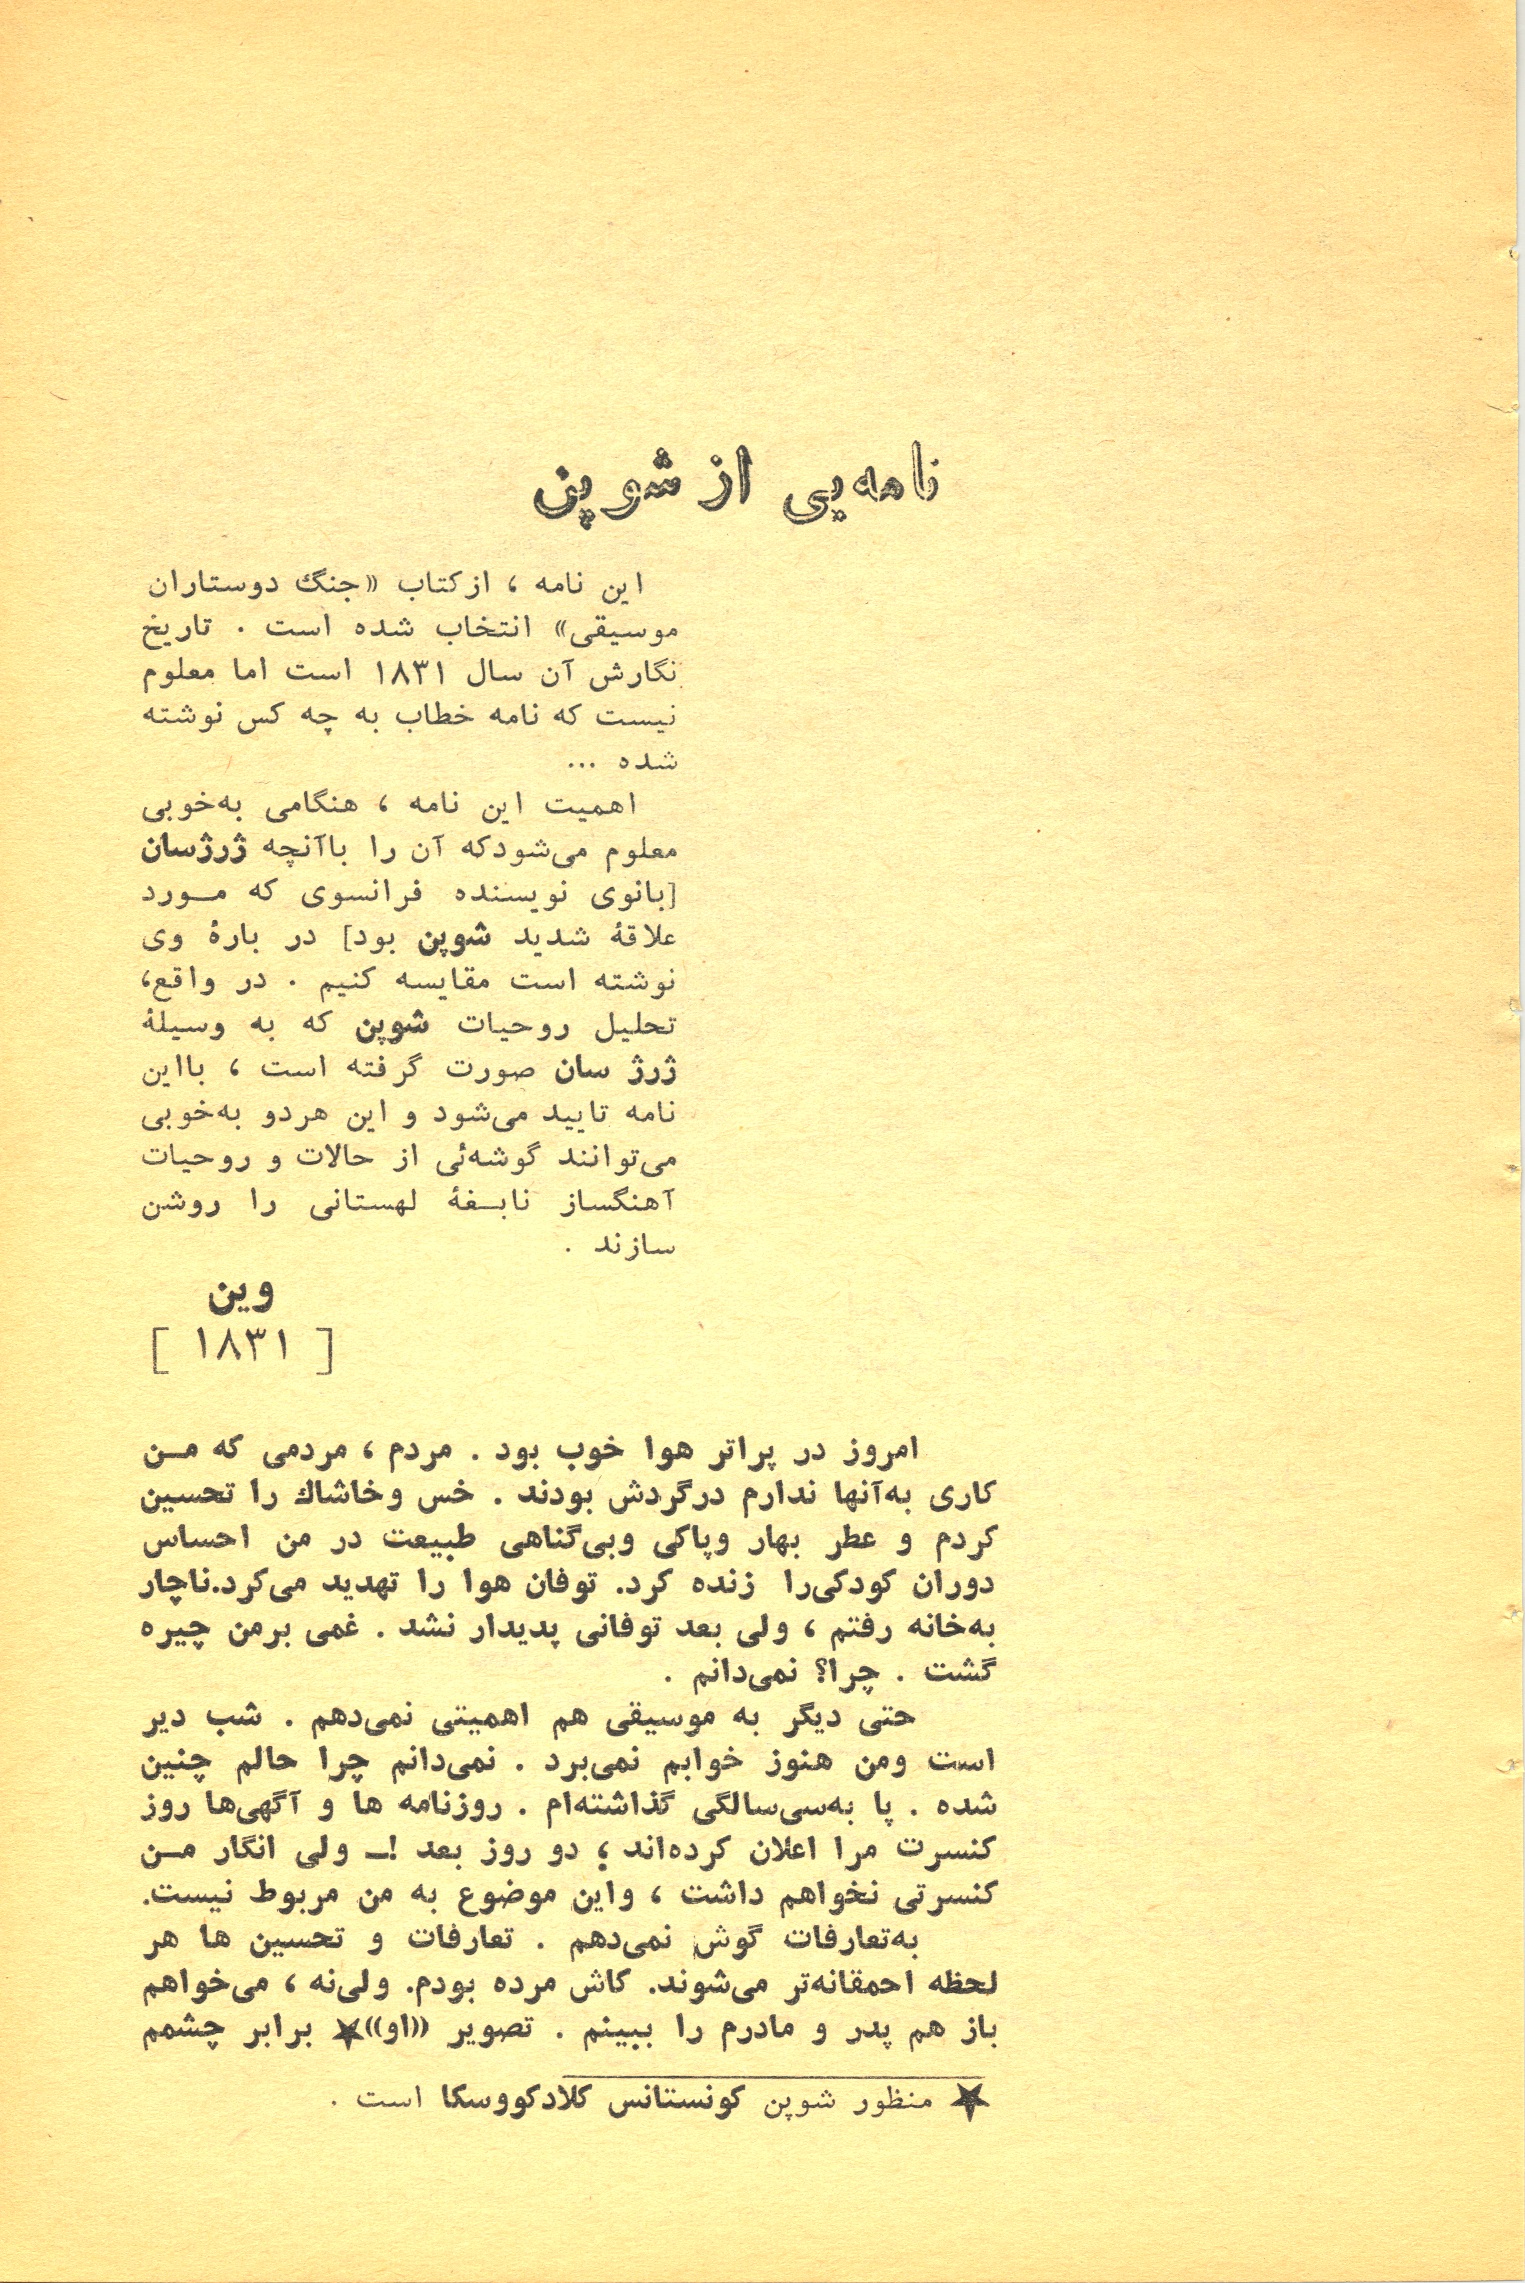 نامه‌یی از شوپن
این نامه ، از کتاب «جنگ دوستاران
موسیقی» انتخاب شده است . تاریخ
نگارش آن سال ۱۸۳۱ است اما معلوم
نیست که نامه خطاب به چه کس نوشته
شده ...
اهمیت این نامه ، هنگامی به‌خوبی
معلوم می‌شودکه آن را باآنچه ژرژسان
[بانوی نویسنده فرانسوی که مورد
علاقهٔ شدید شوپن بود] در بارهٔ وی
نوشته است مقایسه کنیم . در واقع،
تحلیل روحیات شوپن که به وسیلهٔ
ژرژ سان صورت گرفته است ، بااین
نامه تایید می‌شود و این هردو به‌خوبی
می‌توانند گوشه‌ئی از حالات و روحیات
آهنگساز نابغهٔ لهستانی را روشن
سازند .
وین
[ ۱۸۳۱ ]
امروز در پراتر هوا خوب بود . مردم ، مردمی که من
کاری به‌آنها ندارم درگردش بودند . خس وخاشاك را تحسین
کردم و عطر بهار وپاکی وبی‌گناهی طبیعت در من احساس
دوران کودکی‌را زنده کرد. توفان هوا را تهدید می‌کرد.ناچار
به‌خانه رفتم ، ولی بعد توفانی پدیدار نشد . غمی برمن چیره
گشت . چرا؟ نمی‌دانم .
حتی دیگر به موسیقی هم اهمیتی نمی‌دهم . شب دیر
است ومن هنوز خوابم نمی‌برد . نمی‌دانم چرا حالم چنین
شده . پا به‌سی‌سالگی گذاشته‌ام . روزنامه ها و آگهی‌ها روز
کنسرت مرا اعلان کرده‌اند ؛ دو روز بعد !ـ ولی انگار من
کنسرتی نخواهم داشت ، واین موضوع به من مربوط نیست.
به‌تعارفات گوش نمی‌دهم . تعارفات و تحسین ها هر
لحظه احمقانه‌تر می‌شوند. کاش مرده بودم. ولی‌نه ، می‌خواهم
باز هم پدر و مادرم را ببینم . تصویر «او»★ برابر چشمم
★ منظور شوپن کونستانس کلادکووسکا است .